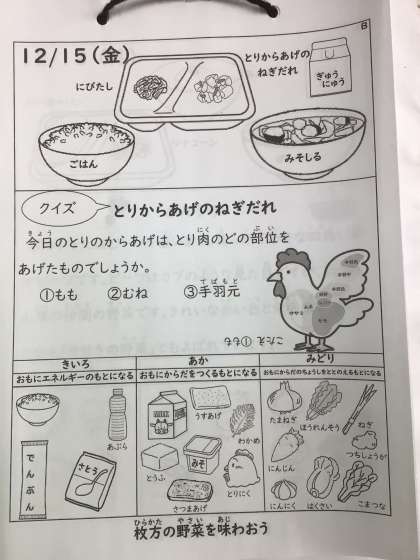 B
12/15(金)
とりからあげの
ねぎだれ
にびたし
ぎゅう
にゅう
ごはん
みそしる
クイズ
とりからあげのねぎだれ
今日のとりのからあげは、とり肉のどの部位を
あげたものでしょうか。
①もも ②むね ③手羽元
ササミ
むね
もも
こたえ ①もも
きいろ
おもにエネルギーのもとになる
あぶら
でんぷん
さとう
あか
おもにからだをつくるもとになる
うすあげ
わかめ
とうふ
みそ
とりにく
さつまあげ
みどり
おもにからだのちょうしをととのえるもとになる
たまねぎ
ほうれんそう
ねぎ
にんじん
つちしょうが
にんにく
はくさい
こまつな
枚方の野菜を味わおう